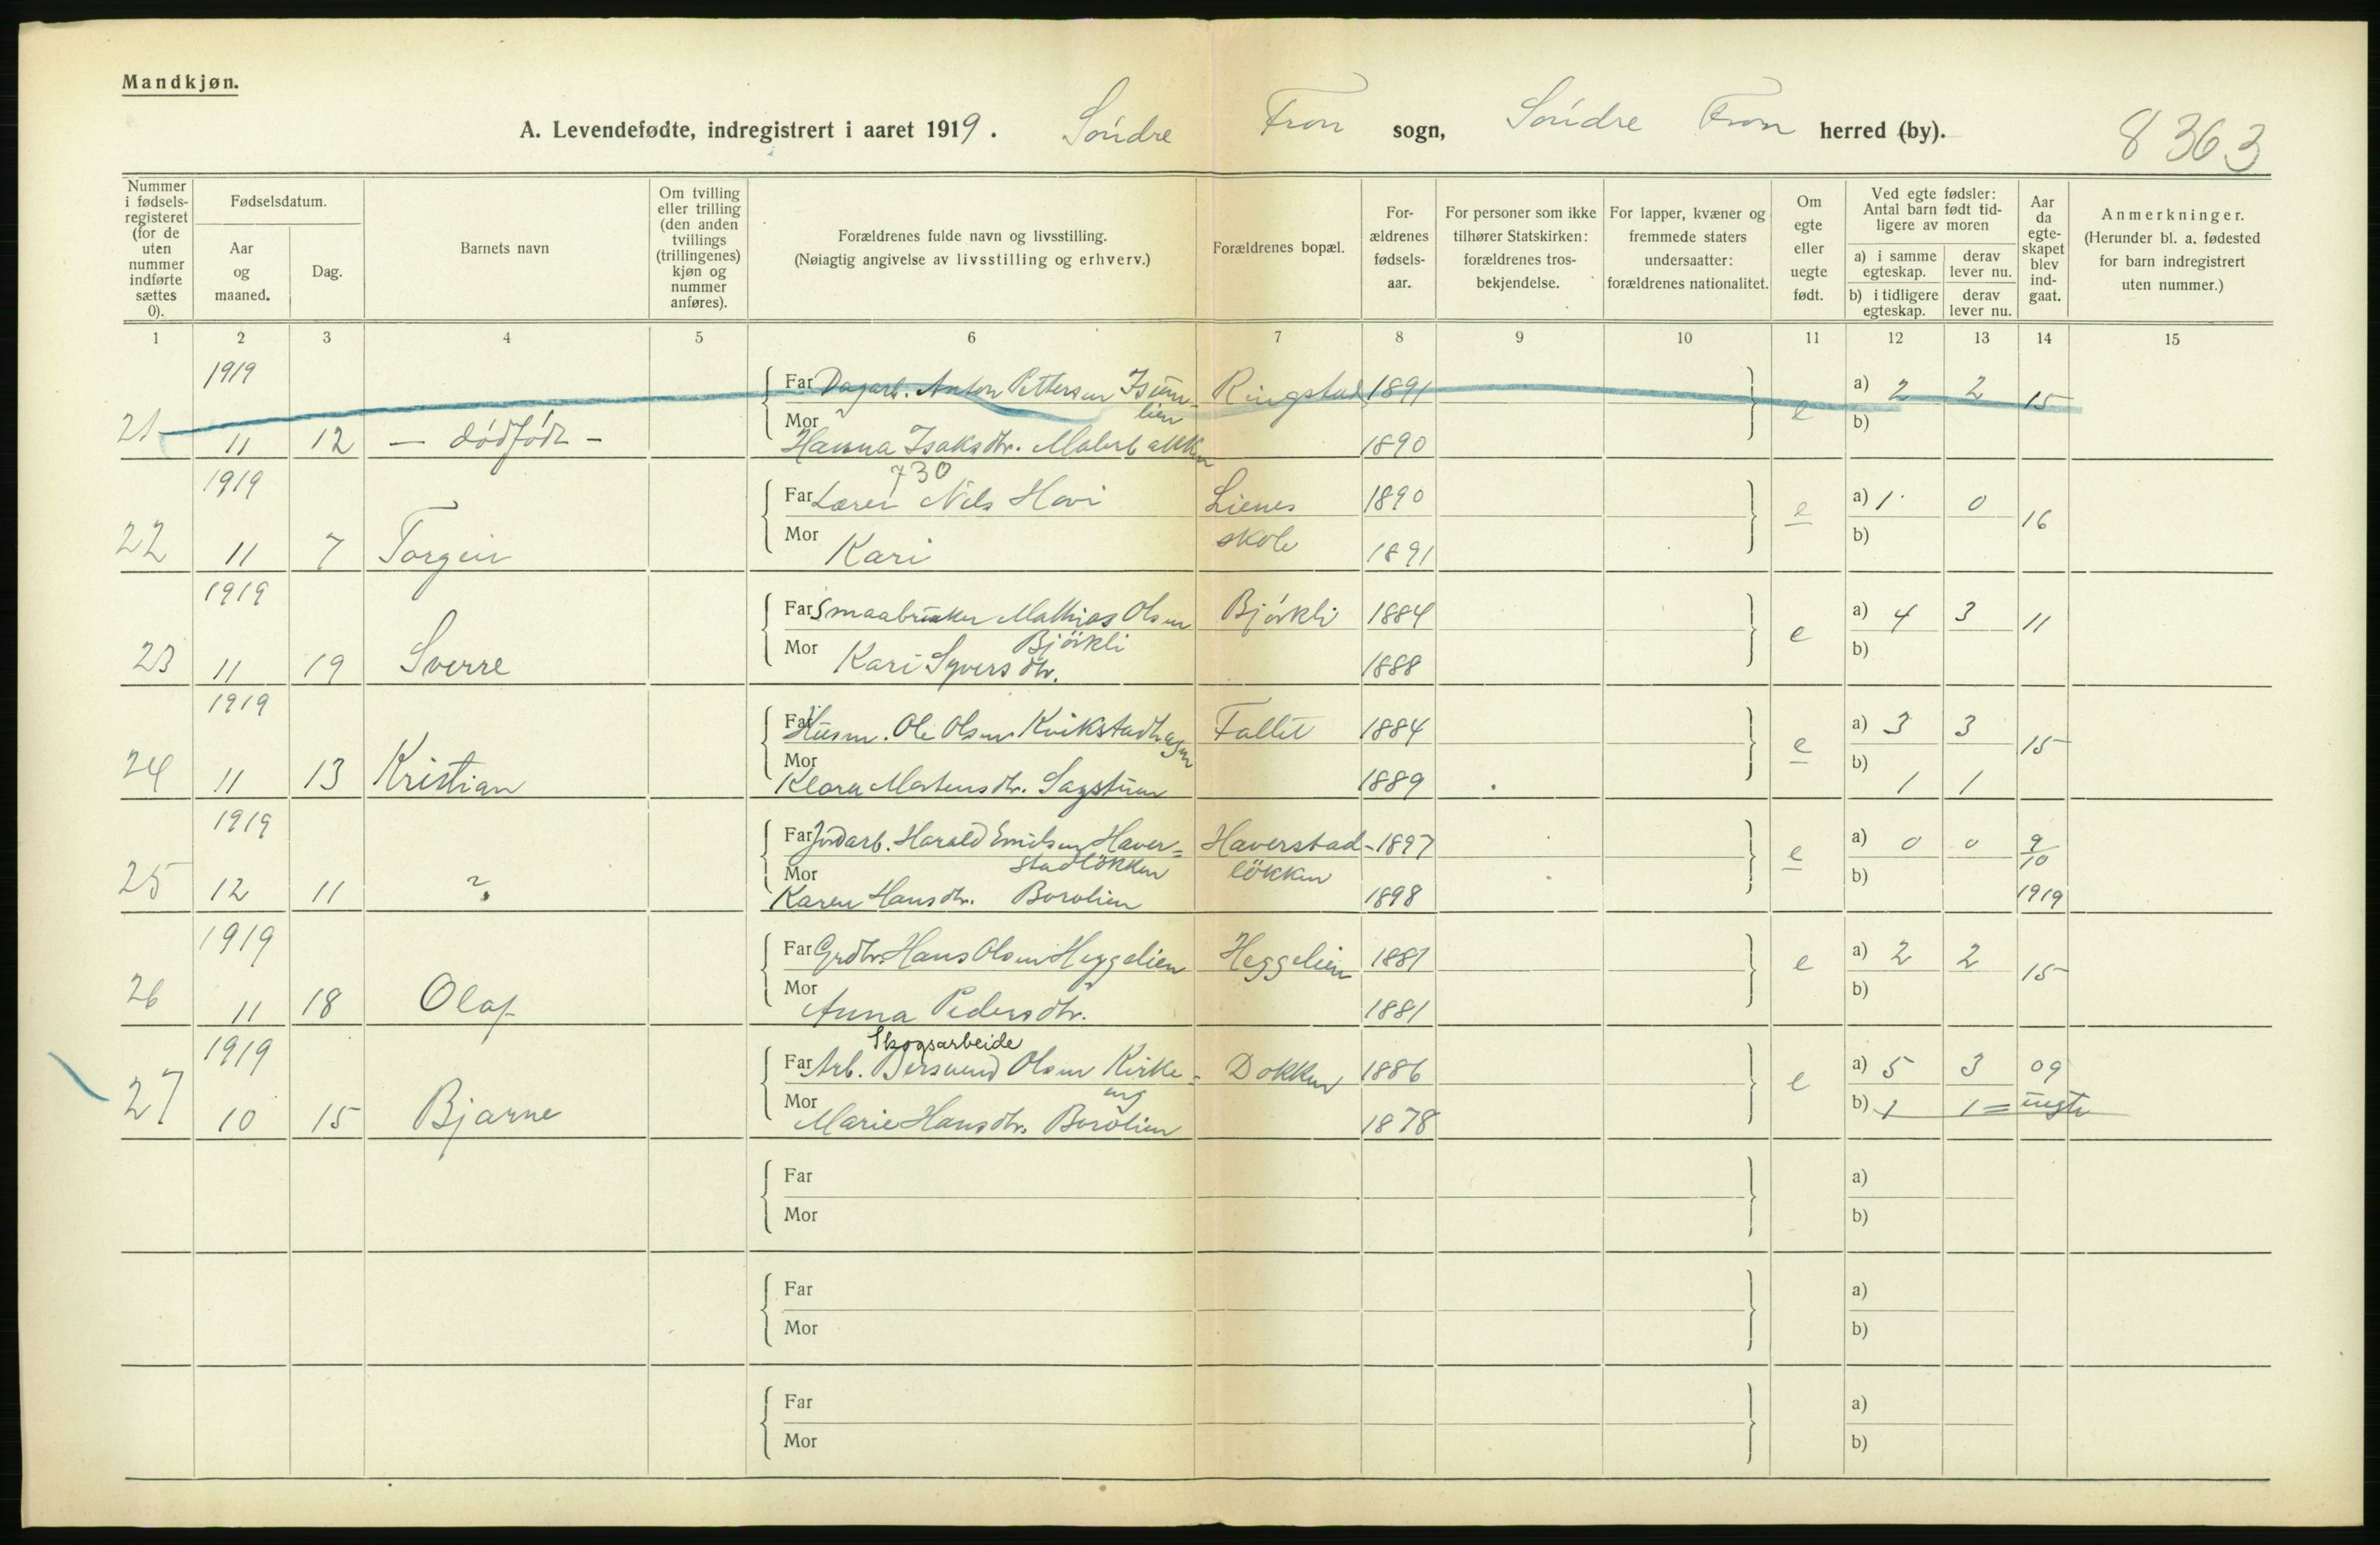 Mandkjøn.
A. Levendefødte, indregistrert i aaret 1919. Söndre Fron sogn, Söndre Fron herred (by).
8363
Nummer i fødsels-registeret (for de uten nummer indførte sættes 0).
Fødselsdatum.
Aar og maaned.
Dag.
Barnets navn
Om tvilling eller trilling (den anden tvillings (trillingenes) kjøn og nummer anføres).
Forældrenes fulde navn og livsstilling.
(Nøiagtig angivelse av livsstilling og erhverv.)
Forældrenes bopæl.
For-ældrenes fødsels-aar.
For personer som ikke tilhører Statskirken: forældrenes tros-bekjendelse.
For lapper, kvæner og fremmede staters undersaatter: forældrenes nationalitet.
Om egte eller uegte født.
Ved egte fødsler: Antal barn født tid-ligere av moren
a) i samme egteskap.
derav lever nu.
b) i tidligere egteskap.
derav lever nu.
Aar da egte-skapet blev ind-gaat.
Anmerkninger.
(Herunder bl. a. fødested for barn indregistrert uten nummer.)
1 2 3 4 5 6 7 8 9 10 11 12 13 14 15
1919 Far Dagarb. Anton Pettersen Isum- Ringstad 1891 a) 2 2 15
lien
21 11 12 - dödfödt - Mor Hanna Isaksdtr. Malerbakken 1890 e b)
730
1919 Far Lærer Nils Hovi Lienes 1890 a) 1 0 16
22 11 7 Torgeir Mor Kari skole 1891 e b)
1919 Far Smaabruker Mathias Olsen Björkli 1884 a) 4 3 11
Björkli
23 11 19 Sverre Mor Kari Syversdtr. 1888 e b)
1919 Far Husm. Ole Olsen Kvikstadhagen Fallet 1884 a) 3 3 15
24 11 13 Kristian Mor Klara Mortensdtr. Sagstuen 1889 e b) 1 1
1919 Far Jordarb. Harald Emilsen Haver= Haverstad- 1897 a) 0 0 9/10
stadlökken lökken
25 12 11 ? Mor Karen Hansdtr. Borolien 1898 e b) 1919
1919 Far Grdbr. Hans Olsen Heggelien Heggelien 1881 a) 2 2 15
26 11 18 Olaf Mor Anna Pedersdtr. 1881 e b)
Skogsarbeide
1919 Far Arb. Bersvend Olsen Kirke- Dokken 1886 a) 5 3 09
eng
27 10 15 Bjarne Mor Marie Hansdtr. Borolien 1878 e b) 1 1 = uegte
Far a)
Mor b)
Far a)
Mor b)
Far a)
Mor b)